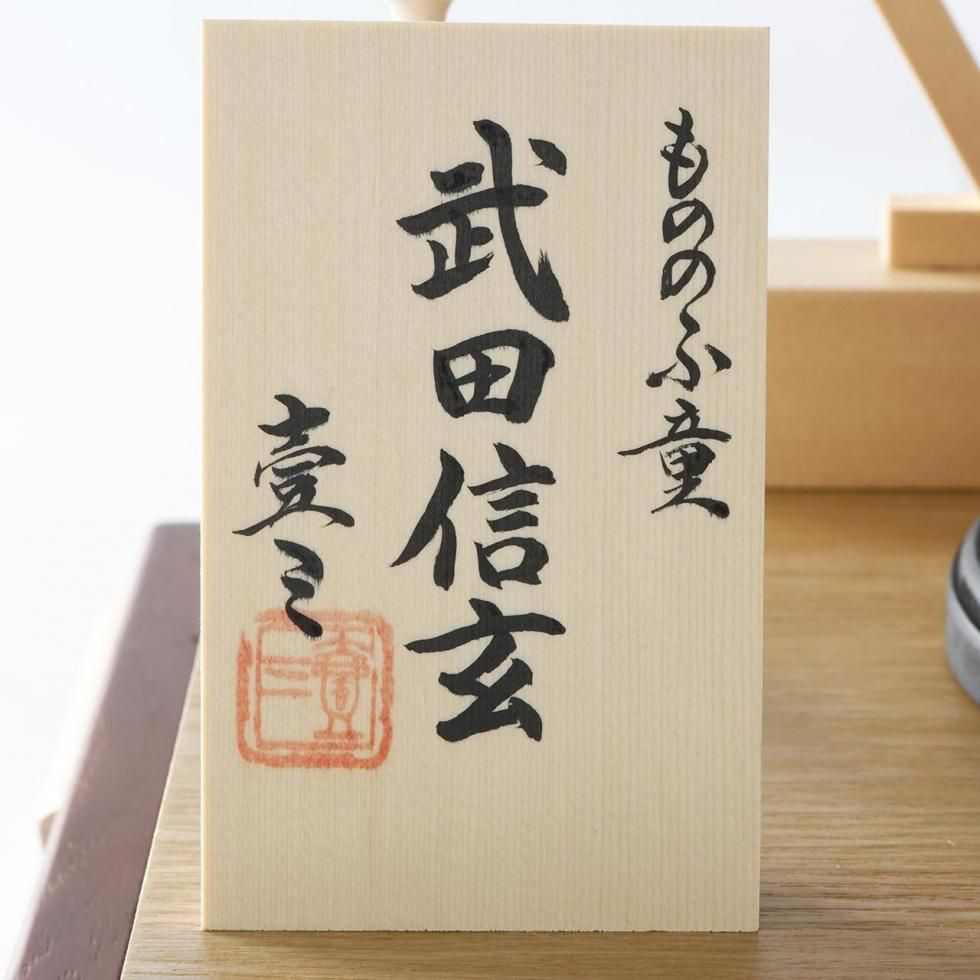 もののふ童
武田信玄
壹三